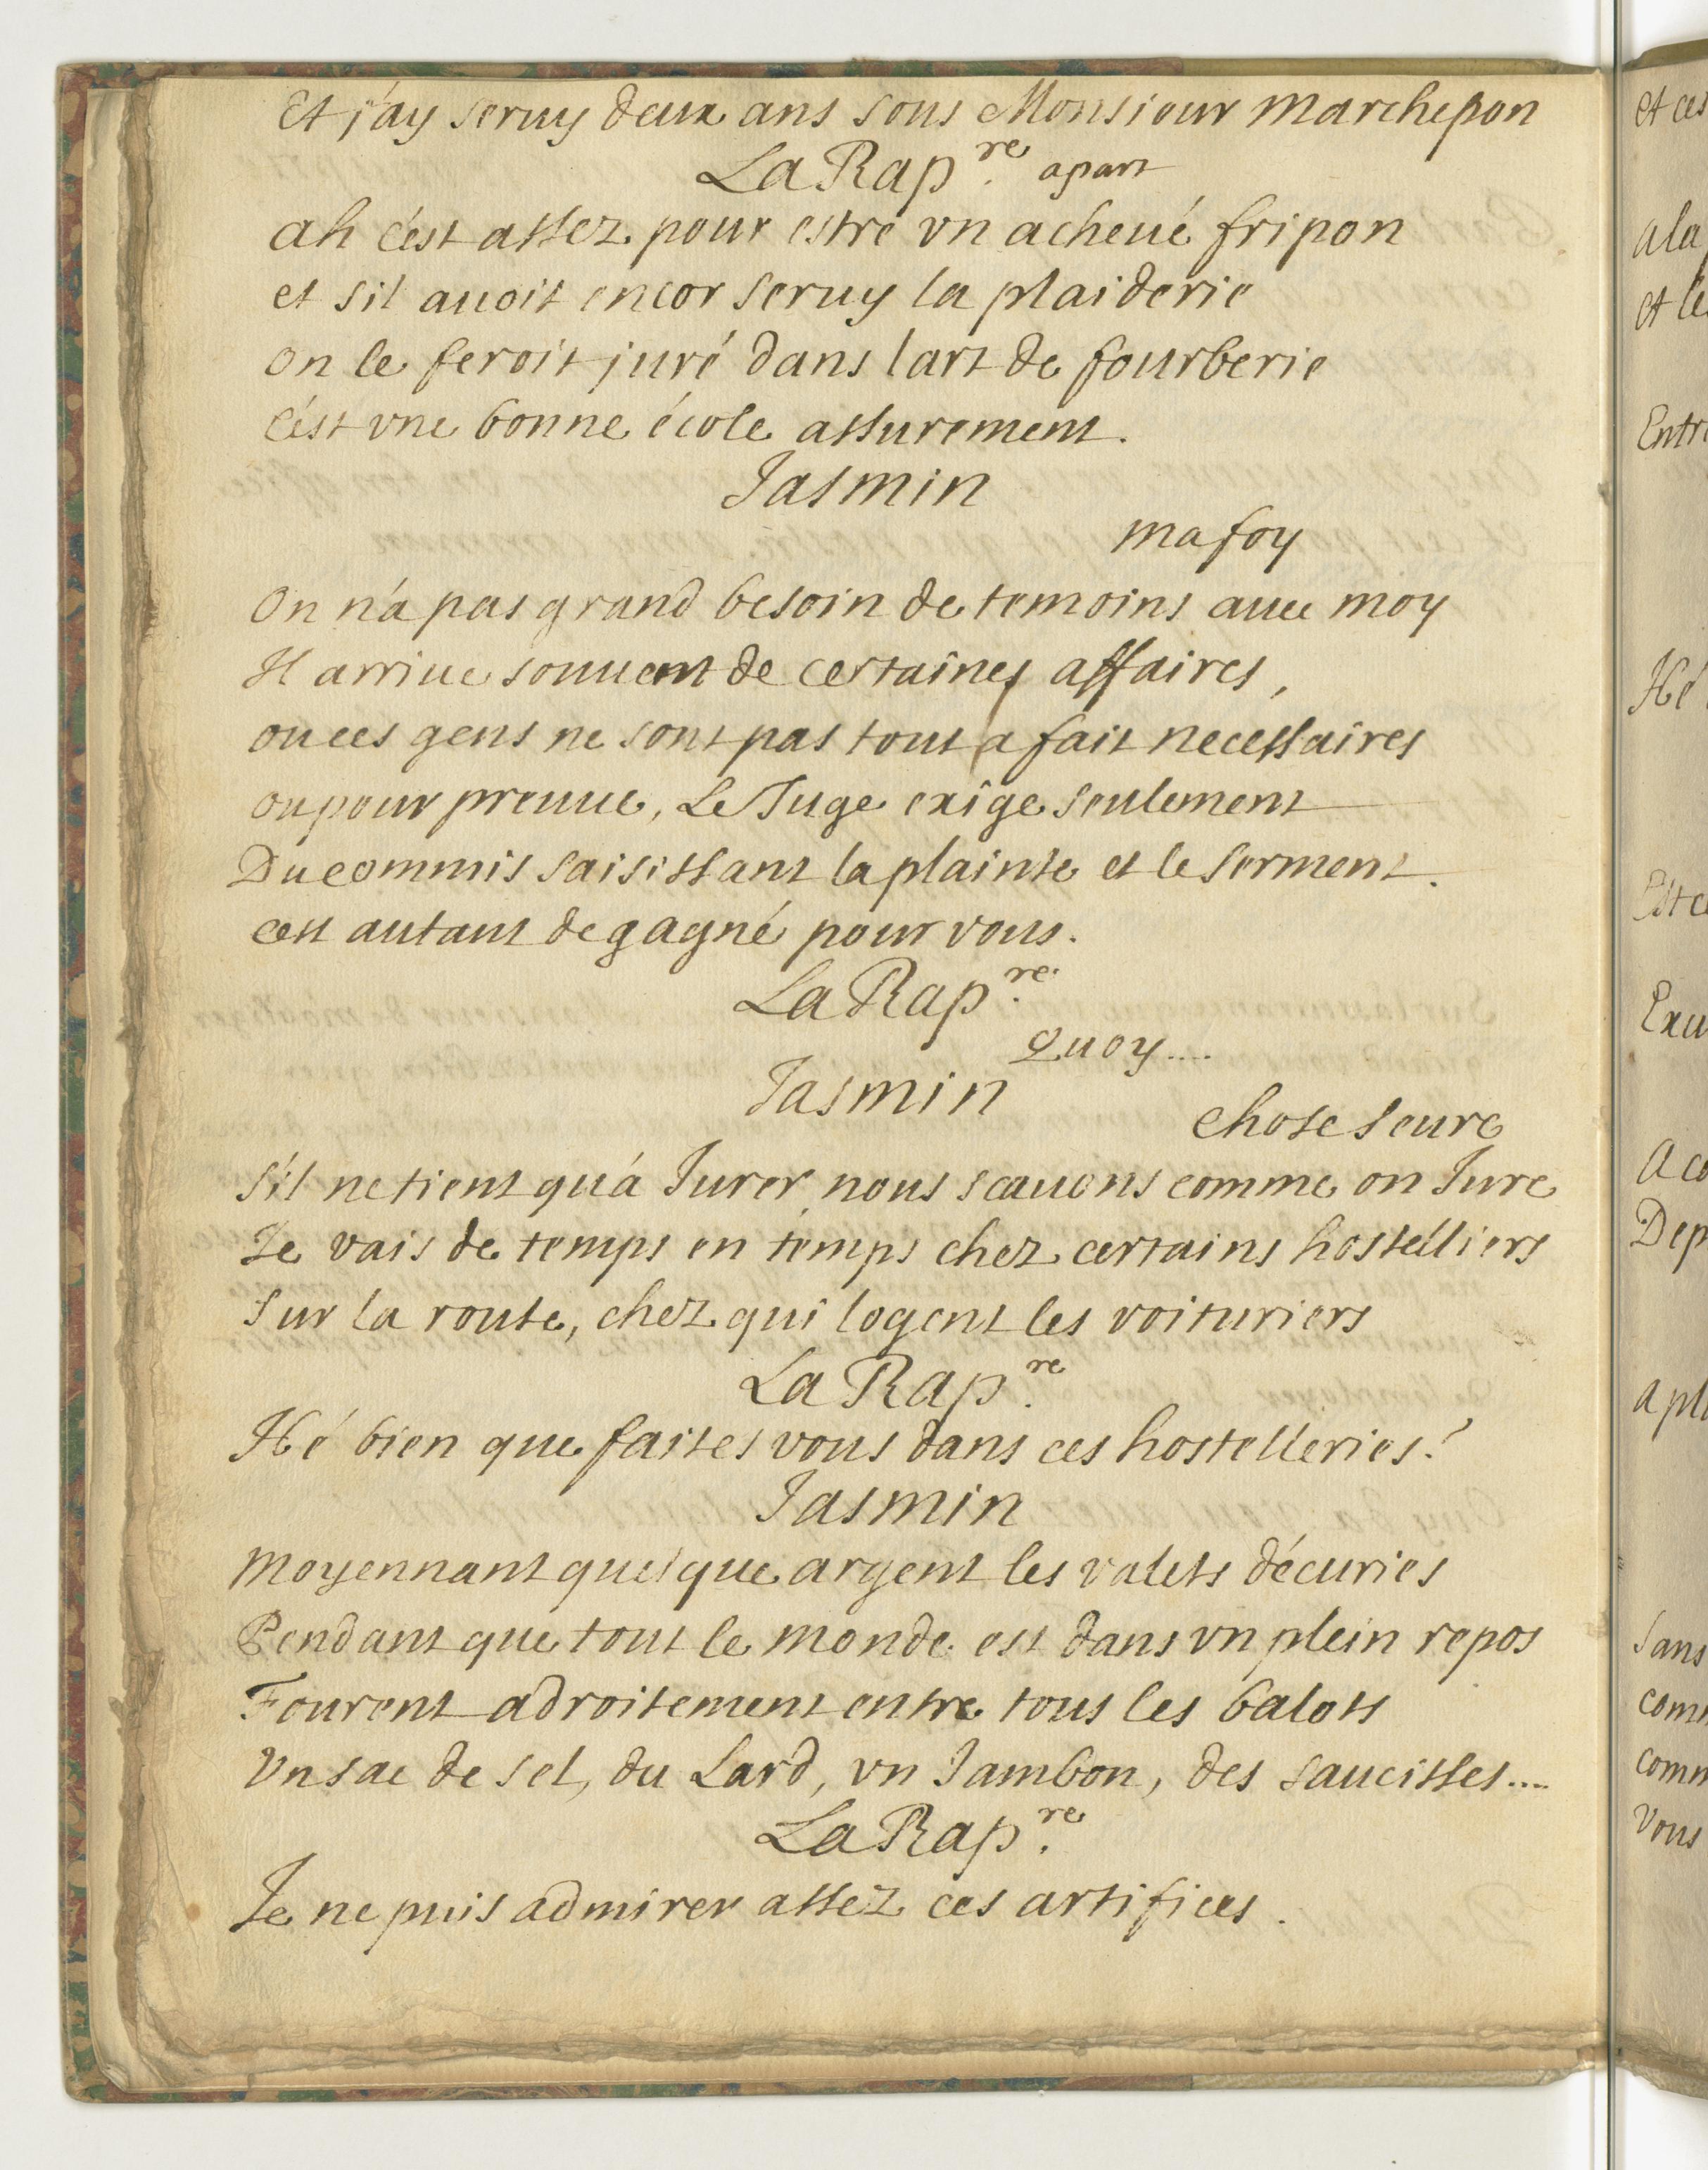 Et j'ay seruy deux ans sous Monsieur Marchepon
La Rap.re apart
ah c'est assez pour estre vn acheué fripon
et sil auoit encor seruy la plaiderie
on le feroit juré dans lart de fourberie
C'est vne bonne école assurement.
Jasmin
ma foy
On n'a pas grand besoin de temoins auec moy
Il arriue souuent de certaines affaires,
ou ces gens ne sont pas tout a fait necessaires
ou pour preuue, Le Juge exige seulement
Du commis saisissant la plainte et le serment.
cest autant de gagné pour vous.
La Rap.re
Quoy....
Jasmin
chose seure
s'il ne tient qu'a Jurer nous scauons comme on Jure
Je vais de temps en temps chez certains hostelliers
sur la route, chez qui logent les voituriers
La Rap.re
Hé bien que faites vous dans ces hostelleries?
Jasmin
Moyennant quelque argent les valets d'écuries
Pendant que tout le monde est dans vn plein repos
Fourent adroitement entre tous les balots
Vn sac de sel, du Lard, vn Jambon, des saucisses....
La Rap.re
Je ne puis admirer assez ces artifices.
et ces
ala
et le
Entr
Hé
Exc
a co
Dep
a pl
sans
com
comm
vous